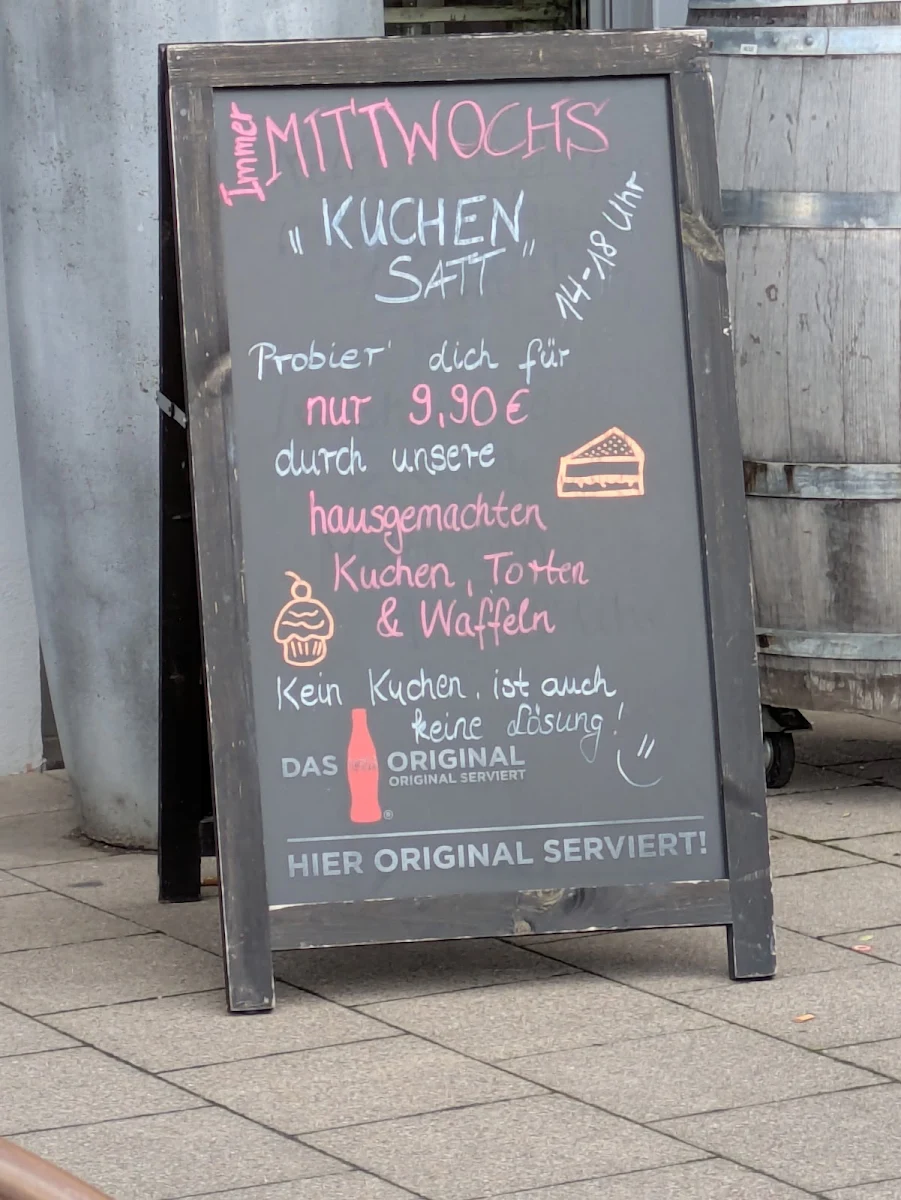 Immer MITTWOCHS
„KUCHEN
SATT"
14-18 Uhr
Probier' dich für
nur 9,90€
durch unsere
hausgemachten
Kuchen, Torten
& Waffeln
Kein Kuchen, ist auch
keine Lösung!
DAS ORIGINAL
ORIGINAL SERVIERT
HIER ORIGINAL SERVIERT!